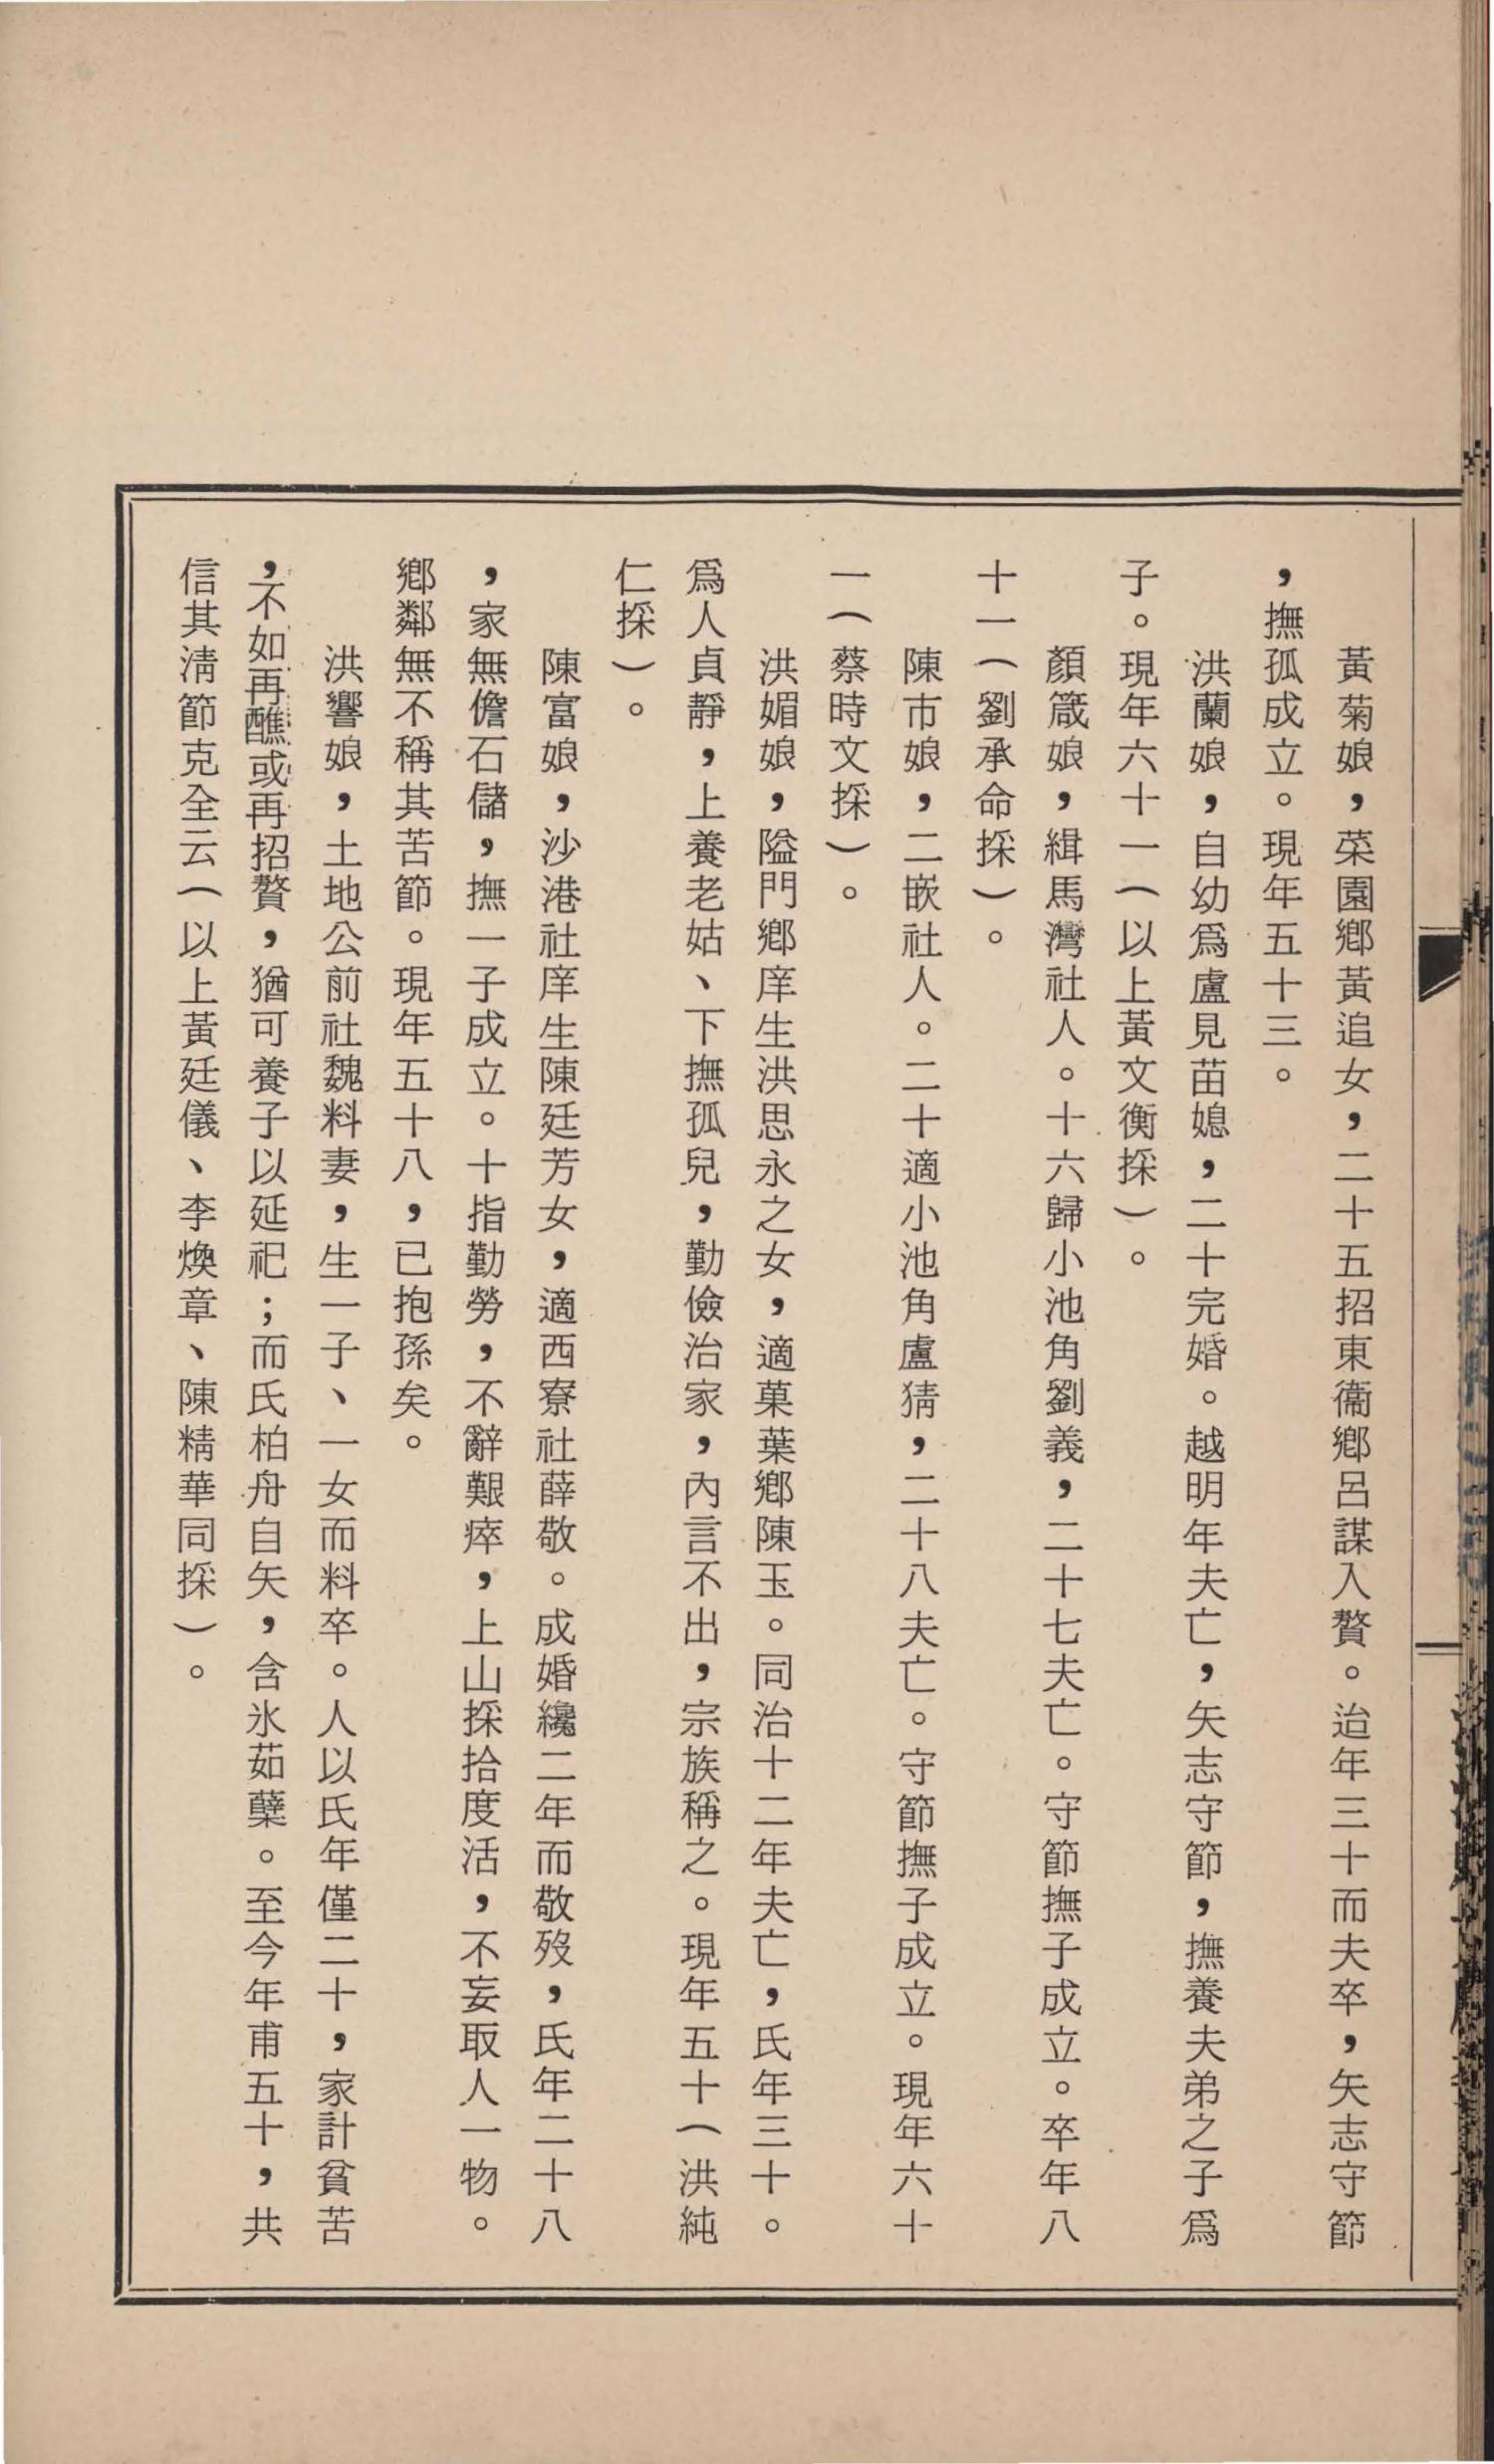 黃菊娘，菜園鄉黃追女，二十五招東衞鄉呂謀入贅。迨年三十而夫卒，矢志守節
，撫孤成立。現年五十三。
洪蘭娘，自幼爲盧見苗媳，二十完婚。越明年夫亡，矢志守節，撫養夫弟之子爲
子。現年六十一（以上黃文衡採）。
顏箴娘，緝馬灣社人。十六歸小池角劉義，二十七夫亡。守節撫子成立。卒年八
十一（劉承命採）。
陳市娘，二嵌社人。二十適小池角盧猜，二十八夫亡。守節撫子成立。現年六十
一（蔡時文採）。
洪媚娘，隘門鄉庠生洪思永之女，適菓葉鄉陳玉。同治十二年夫亡，氏年三十。
爲人貞靜，上養老姑、下撫孤兒，勤儉治家，內言不出，宗族稱之。現年五十（洪純
仁採）。
陳富娘，沙港社庠生陳廷芳女，適西寮社薛敬。成婚纔二年而敬歿，氏年二十八
，家無儋石儲，撫一子成立。十指勤勞，不辭艱瘁，上山採拾度活，不妄取人一物。
鄉鄰無不稱其苦節。現年五十八，已抱孫矣。
洪響娘，土地公前社魏料妻，生一子、一女而料卒。人以氏年僅二十，家計貧苦
，不如再醮或再招贅，猶可養子以延祀；而氏柏舟自矢，含氷茹蘗。至今年甫五十，共
信其淸節克全云（以上黃廷儀、李煥章、陳精華同採）。